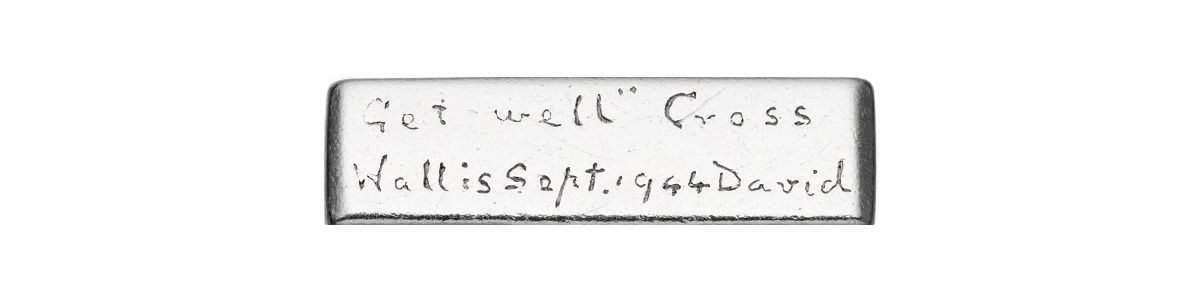 Get-well" Cross
Wallis Sept. 1944 David